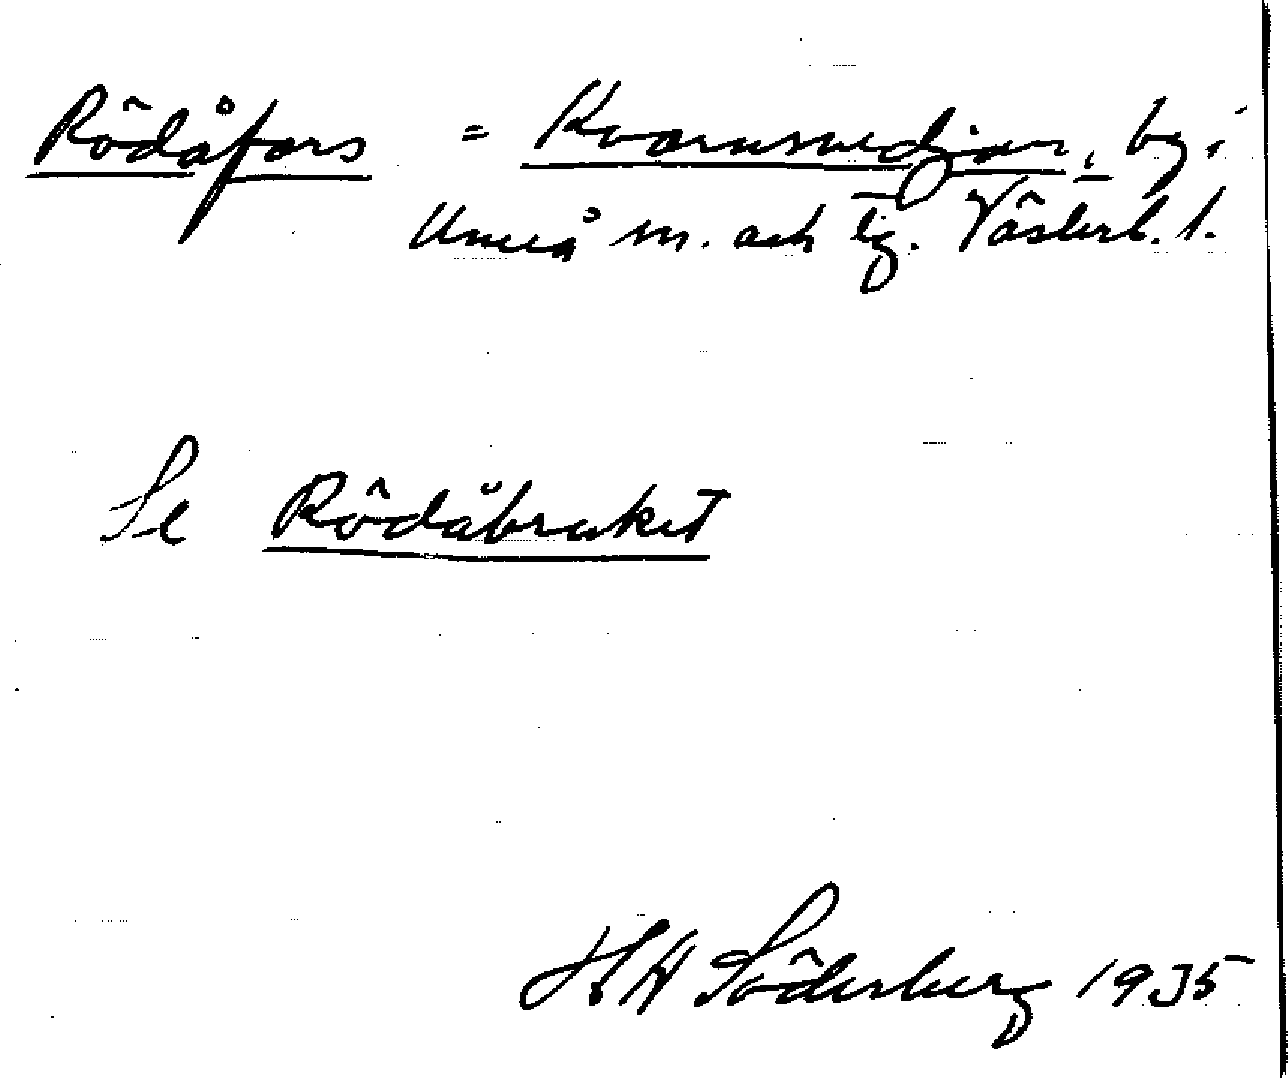 Rödåfors = Kvarnsmedjan, by i
Umeå sn. och tg. Västerb. l.
Se Rödåbruket
H Söderberg 1935